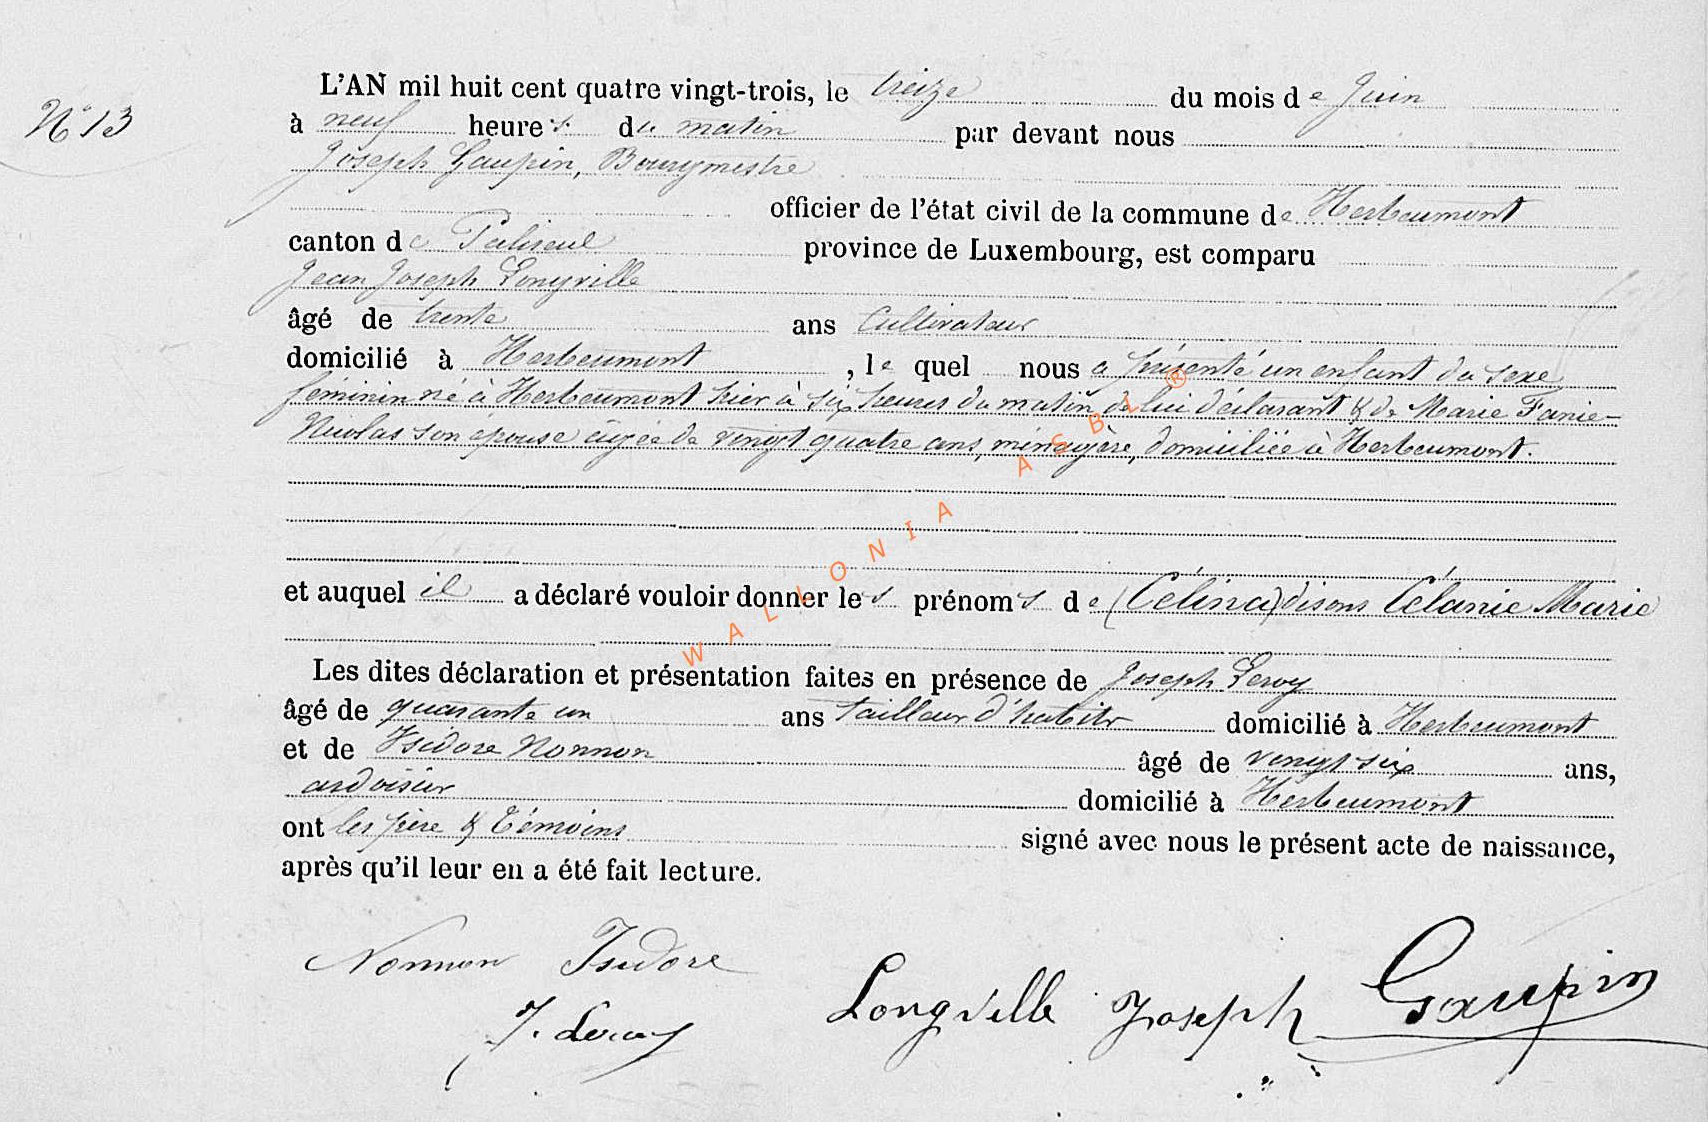 N° 13
L'AN mil huit cent quatre vingt-trois, le treize du mois de Juin
à neuf heures du matin par devant nous
Joseph Gaupin, Bourgmestre
officier de l'état civil de la commune de Herbeumont
canton de Paliseul province de Luxembourg, est comparu
Jean Joseph Longville
âgé de trente ans Cultivateur
domicilié à Herbeumont, le quel nous a présenté un enfant du sexe
féminin né à Herbeumont hier à six heures du matin de lui déclarant & de Marie Fanie-
Nicolas son épouse âgée de vingt quatre ans, ménagère, domiciliée à Herbeumont.
et auquel il a déclaré vouloir donner les prénoms de (Célina) disons Célanie Marie
Les dites déclaration et présentation faites en présence de Joseph Leroy
âgé de quarante un ans tailleur d'habits domicilié à Herbeumont
et de Isidore Nonnon âgé de vingt six ans,
ardoisier domicilié à Herbeumont
ont les père & Témoins signé avec nous le présent acte de naissance,
après qu'il leur en a été fait lecture.
Nonnon Isidore
J. Leroy
Longville Joseph
Gaupin
WALLONIA ASBL ®